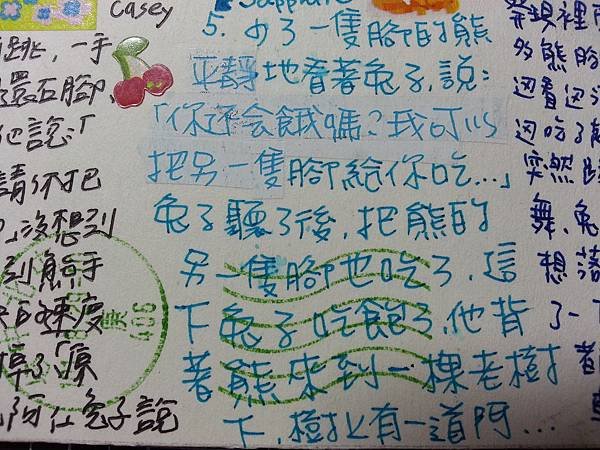 Casey
Sapphire
5. 少了一隻腳的熊
平靜地看著兔子,說:
「你还会餓嗎?我可以
把另一隻腳給你吃...」
兔子聽了後,把熊的
另一隻腳也吃了,這
下兔子吃飽了,他背
著熊來到一棵老樹
下,樹上有一道門...
跳,一手
還在腳
他說:「
請不把
沒想到
到熊手
的速度
掉了「原
阿仁兔子說
406
發現裡面
多熊腳
這看這
這吃了
突然
舞,兔
想落
了一下
著